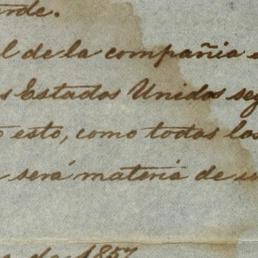 arde.
l de la compañia
s Estados Unidos seg
esto, como todas los
será materia de
de 1857